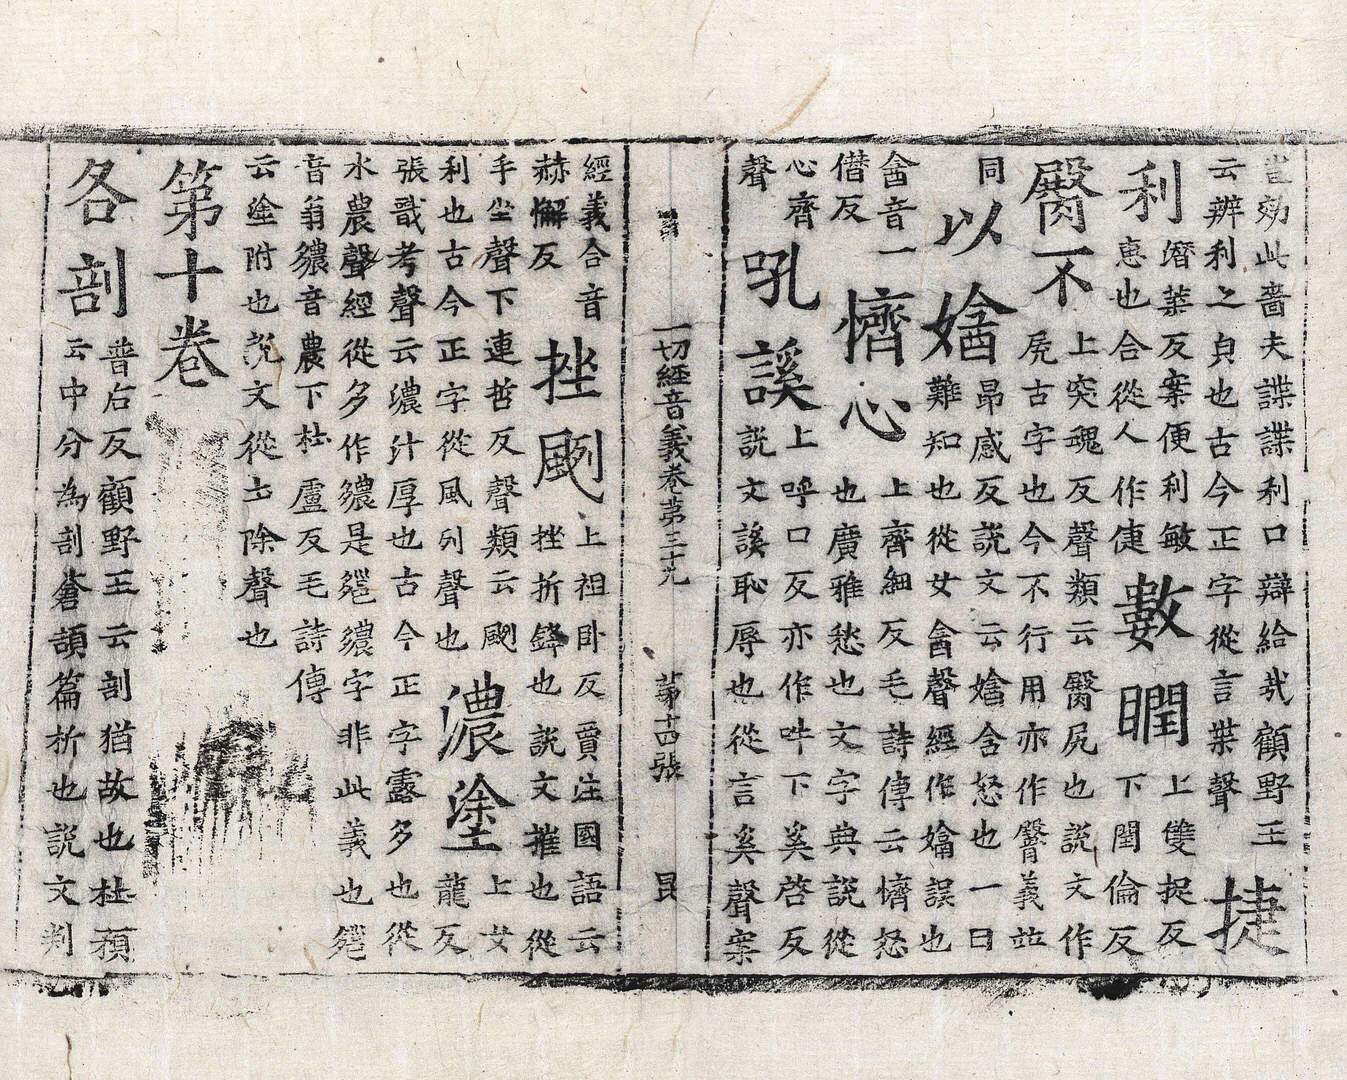 豈効此嗇夫諜諜利口辯給哉顧野王
云辨利之皃也古今正字從言葉聲
捷利
潛葉反案便利敏
惠也合從人作倢
數瞤
上雙捉反
下閏倫反
臋不
上突魂反聲類云臋尻也說文作
尻古字也今不行用亦作臀義並
同
以媕
昂感反說文云媕含怒也一曰
難知也從女酓聲經作媕誤也
酓音一
僣反
懠心
上齊細反毛詩傳云懠怒
也廣雅愁也文字典說從
心齊
聲
吼謑
上呼口反亦作吽下奚啓反
說文謑恥辱也從言奚聲案
一切經音義卷第三十九 第十四張 昆
經義合音
赫懈反
挫颲
上祖卧反賈注國語云
挫折鋒也說文摧也從
手坐聲下連哲反聲類云颲
利也古今正字從風列聲也
濃塗
上女
龍反
張戩考聲云濃汁厚也古今正字露多也從
水農聲經從多作是字非此義也
音翁音農下杜盧反毛詩傳
云塗附也說文從土除聲也
第十卷
各剖
普后反顧野王云剖猶故也杜預
云中分為剖蒼頡篇析也說文判